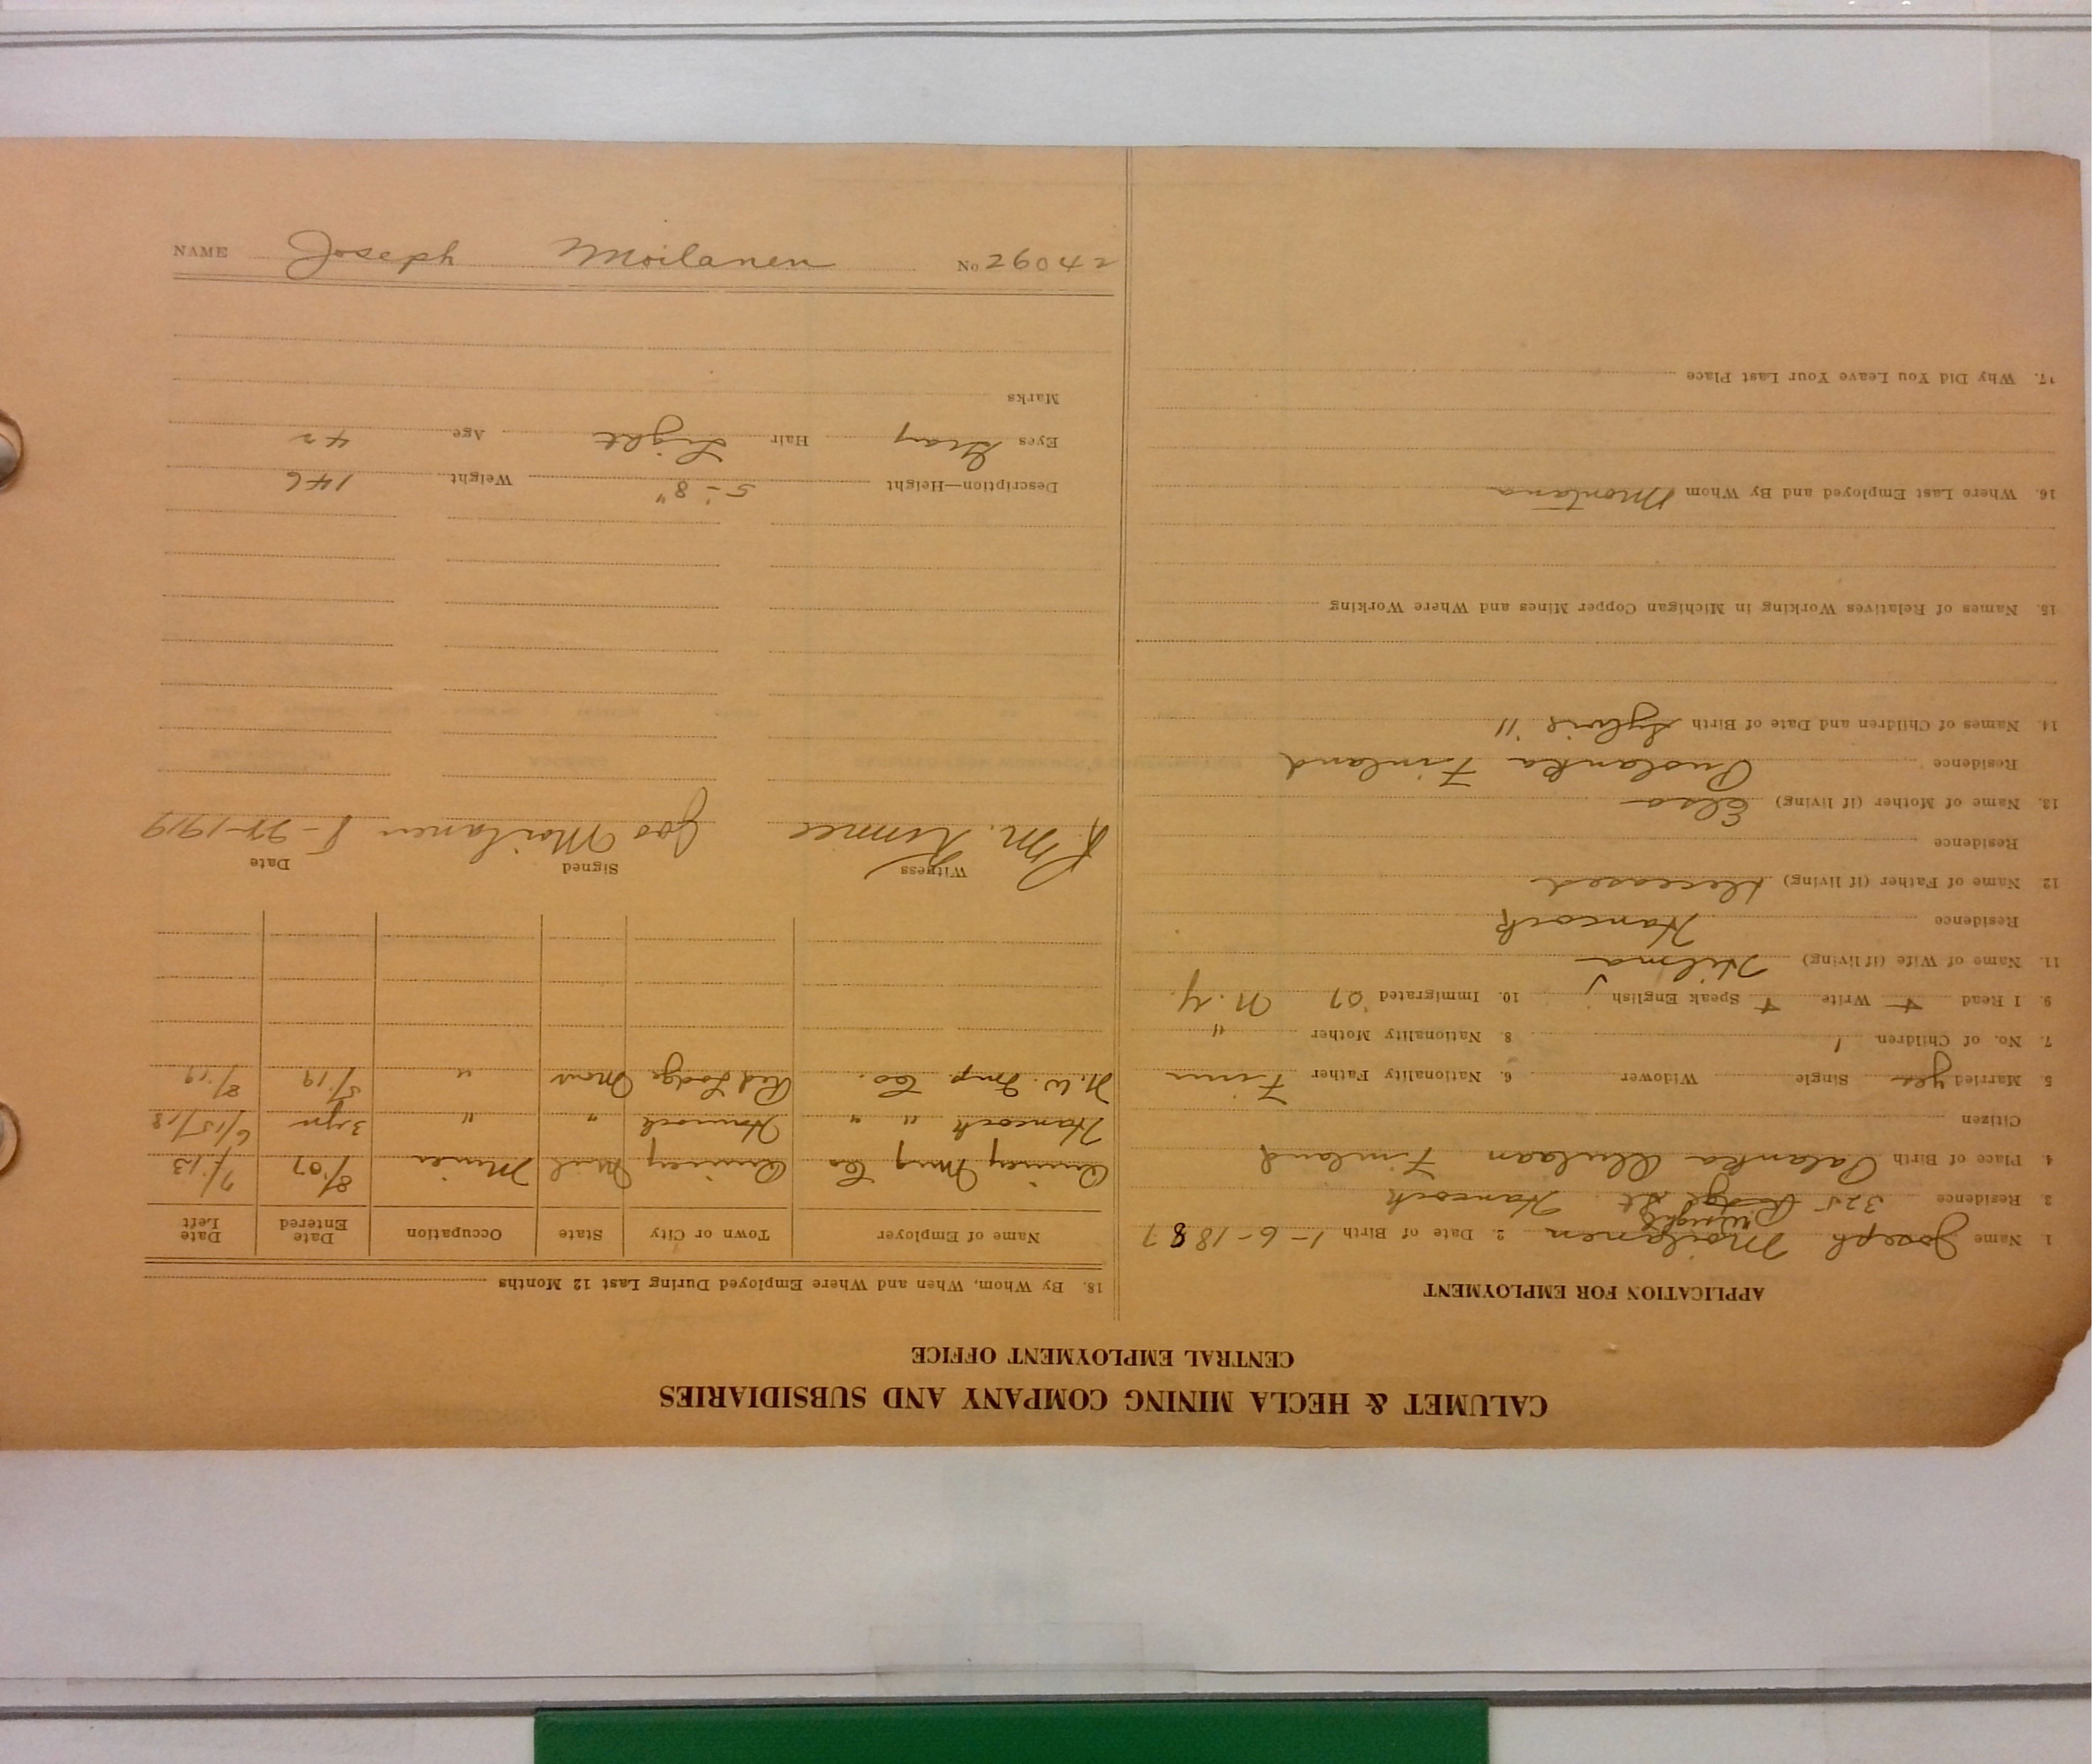 CALUMET & HECLA MINING COMPANY AND SUBSIDIARIES
CENTRAL EMPLOYMENT OFFICE
APPLICATION FOR EMPLOYMENT
1. Name Joseph Moilanen 2. Date of Birth 1-6-1887
Wright
3. Residence 325 St. Hancock
4. Place of Birth Finland
Citizen
5. Married yes Single Widower 6. Nationality Father Finn
7. No. of Children 1 8. Nationality Mother "
9. I Read + Write + Speak English 10. Immigrated '07 N.Y.
11. Name of Wife (if living) Hilma
Residence Hancock
12. Name of Father (if living) Deceased
Residence
13. Name of Mother (if living) Elsa
Residence Finland
14. Names of Children and Date of Birth '11
15. Names of Relatives Working in Michigan Copper Mines and Where Working
16. Where Last Employed and By Whom Montana
17. Why Did You Leave Your Last Place
18. By Whom, When and Where Employed During Last 12 Months
Name of Employer Town or City State Occupation Date Entered Date Left
Quincy Mng Co Quincy Mich Miner 8/'07 7/'13
Hancock " " Hancock " " 3 yrs 6/15/18
N.W. Imp. Co. Red Lodge Mont " 5/'19 8/'19
Witness Signed Date
Jos Moilanen 8-22-1919
Description—Height 5'-8" Weight 146
Eyes Gray Hair Light Age 42
Marks
NAME Joseph Moilanen No 26042